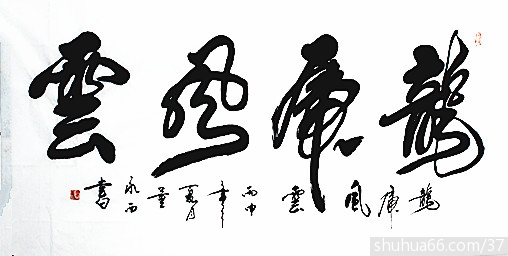 龍虎風雲
龍虎風雲丙申年夏月永西書
shuhua66.com/37